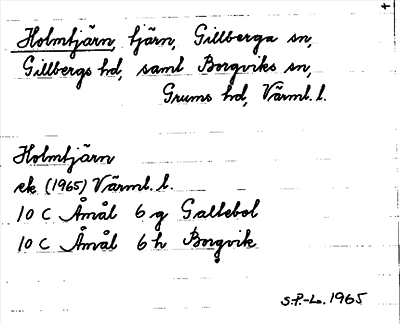 Holmtjärn, tjärn, Gillberga sn,
Gillbergs hd, samt Borgviks sn,
Grums hd, Värml. l.
Holmtjärn
ek (1965) Värml. l.
10 C Åmål 6 g Galtebol
10 C Åmål 6 h Borgvik
S.P.-L. 1965